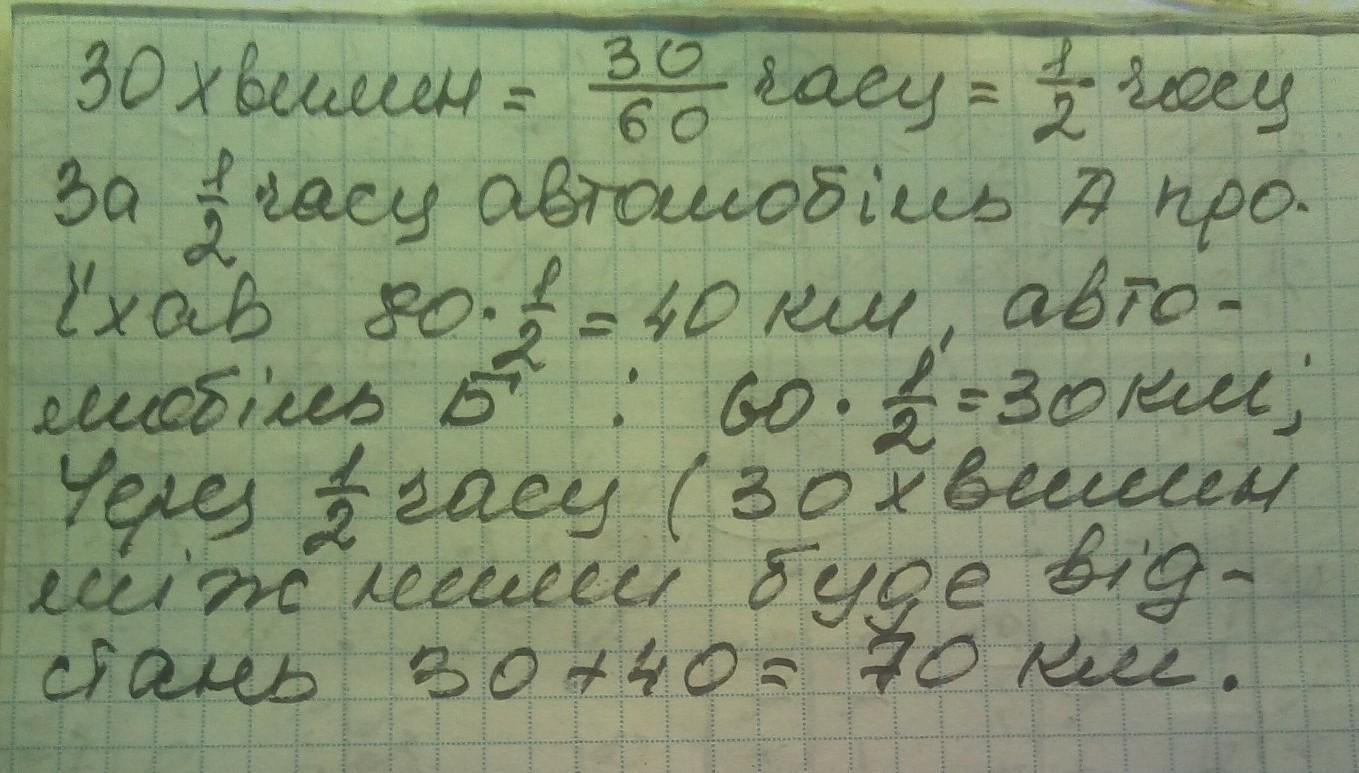 30 хвилин = 30/60 часу = 1/2 часу
За 1/2 часу автомобіль А про-
їхав 80 · 1/2 = 40 км, авто-
мобіль Б : 60 · 1/2 = 30 км;
Через 1/2 часу (30 хвилин
між ними буде від-
стань 30 + 40 = 70 км.